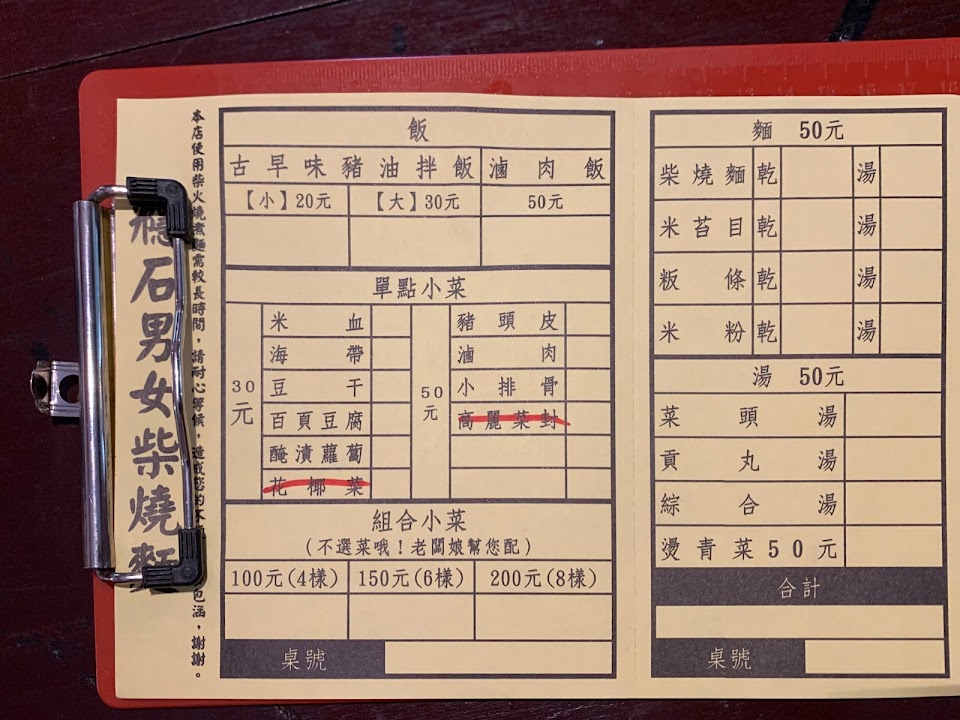 石男女柴燒麵
本店使用柴火燒煮麵需較長時間，請耐心等候，造成您的不 包涵，謝謝。
飯
古早味豬油拌飯 滷肉飯
【小】20元 【大】30元 50元
單點小菜
30元 50元
米血 豬頭皮
海帶 滷肉
豆干 小排骨
百頁豆腐 高麗菜封
醃漬蘿蔔
花椰菜
組合小菜
(不選菜哦！老闆娘幫您配)
100元(4樣) 150元(6樣) 200元(8樣)
桌號
麵 50元
柴燒麵 乾 湯
米苔目 乾 湯
粄條 乾 湯
米粉 乾 湯
湯 50元
菜頭湯
貢丸湯
綜合湯
燙青菜50元
合計
桌號